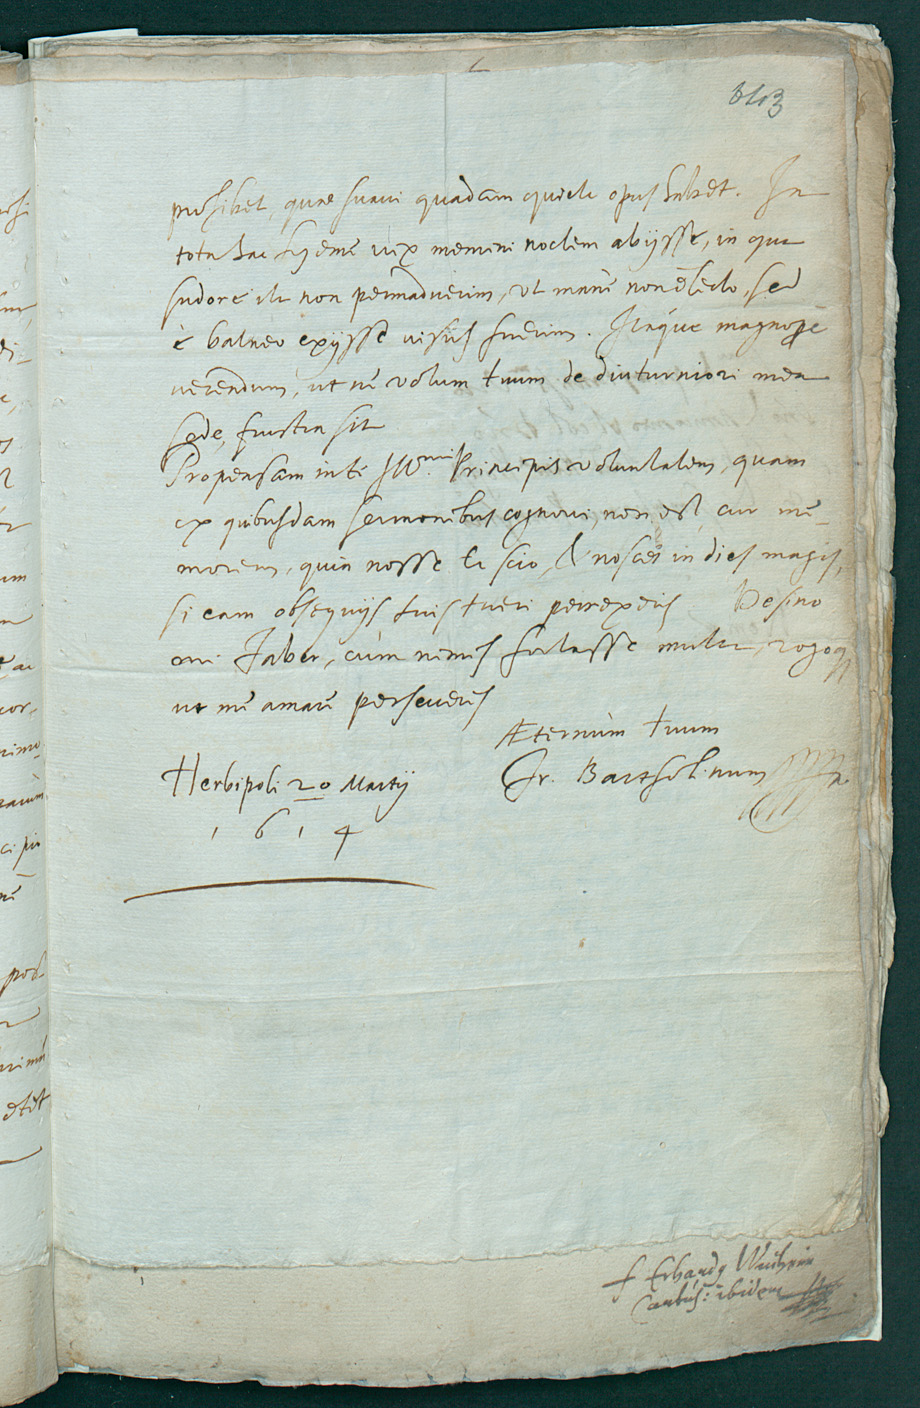 643
prohibet, quae suaui quadam quiete opus habet. In
tota hac hyeme vix memini noctem abijsse, in qua
sudore ita non permaduerim, vt mane non è lecto, sed
è balneo exijsse uisus fuerim. Itaque magnopere
uerendum, ut ne votum tuum de diuturniori mea
sede, frustra sit
Propensam in te Illmi Principis voluntatem, quam
ex quibusdam sermonibus cognoui, non est, cur me-
morem, quia nosse te scio, & nosces in dies magis,
si eam obsequijs tuis tueri perrexeris Desino
mi Faber, cùm nimis fortasse multa, rogoq
ut me amare perseueris
Æternùm tuum
Herbipoli 20 Martij Jr. Bartholinum
1614
f Erhardq
Cartus: ibidem